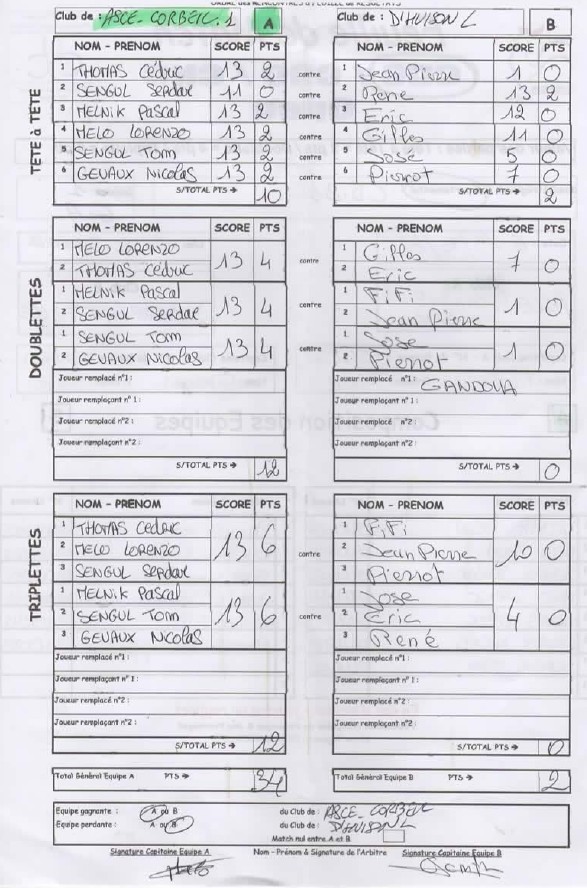 Club de : ASCE. CORBEIL. 1 A
Club de : D'HUISON L B
NOM - PRENOM SCORE PTS NOM - PRENOM SCORE PTS
TÊTE à TÊTE
1 THOMAS Cédric 13 2 contre 1 Jean Pierre 1 0
2 SENGUL Serdar 11 0 contre 2 Rene 13 2
3 MELNIK Pascal 13 2 contre 3 Eric 12 0
4 MELO LORENZO 13 2 contre 4 Gilles 11 0
5 SENGUL Tom 13 2 contre 5 José 5 0
6 GEVAUX NICOLAS 13 2 contre 6 Pierrot 7 0
S/TOTAL PTS → 10 S/TOTAL PTS → 2
DOUBLETTES
NOM - PRENOM SCORE PTS NOM - PRENOM SCORE PTS
1 MELO LORENZO 13 4 contre 1 Gilles 7 0
2 THOMAS Cédric 2 Eric
1 MELNIK Pascal 13 4 contre 1 FiFi 1 0
2 SENGUL Serdar 2 Jean Pierre
1 SENGUL Tom 13 4 contre 1 Jose 1 0
2 GEVAUX NICOLAS 2 Pierrot
Joueur remplacé n°1 : Joueur remplacé n°1 : GANDOUA
Joueur remplaçant n° 1 : Joueur remplaçant n° 1 :
Joueur remplacé n°2 : Joueur remplacé n°2 :
Joueur remplaçant n°2 : Joueur remplaçant n°2 :
S/TOTAL PTS → 12 S/TOTAL PTS → 0
TRIPLETTES
NOM - PRENOM SCORE PTS NOM - PRENOM SCORE PTS
1 THOMAS Cédric 13 6 contre 1 FiFi 10 0
2 MELO LORENZO 2 Jean Pierre
3 SENGUL SERDAR 3 Pierrot
1 MELNIK Pascal 13 6 contre 1 Jose 4 0
2 SENGUL Tom 2 Eric
3 GEVAUX NICOLAS 3 René
Joueur remplacé n°1 : Joueur remplacé n°1 :
Joueur remplaçant n° 1 : Joueur remplaçant n° 1 :
Joueur remplacé n°2 : Joueur remplacé n°2 :
Joueur remplaçant n°2 : Joueur remplaçant n°2 :
S/TOTAL PTS → 12 S/TOTAL PTS → 0
Total Général Equipe A PTS → 34 Total Général Equipe B PTS → 2
Equipe gagnante : A ou B du Club de : ASCE. CORBEIL
Equipe perdante : A ou B du Club de : D'HUISON L
Match nul entre A et B
Signature Capitaine Equipe A Nom - Prénom & Signature de l'Arbitre Signature Capitaine Equipe B